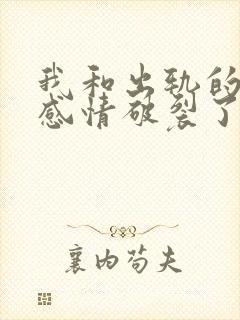 我和出轨的
感情破裂了
襄内苟夫